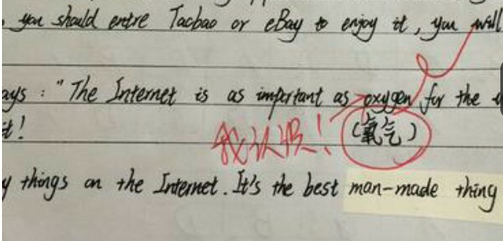 . you should entre Taobao or eBay to enjoy it, you will
ays : "The Internet is as important as oxygen for the
(氧气)
我认识!
t!
y things on the Internet. It's the best man-made thing